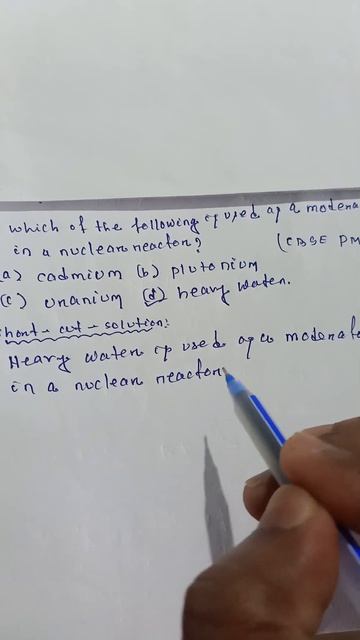 which of the following is used as a modera
in a nuclear reactor? (CBSE PM
a) cadmium (b) plutonium
(c) uranium (d) heavy water.
hort-cut-solution:
Heavy water is used as a moderato
in a nuclear reactor